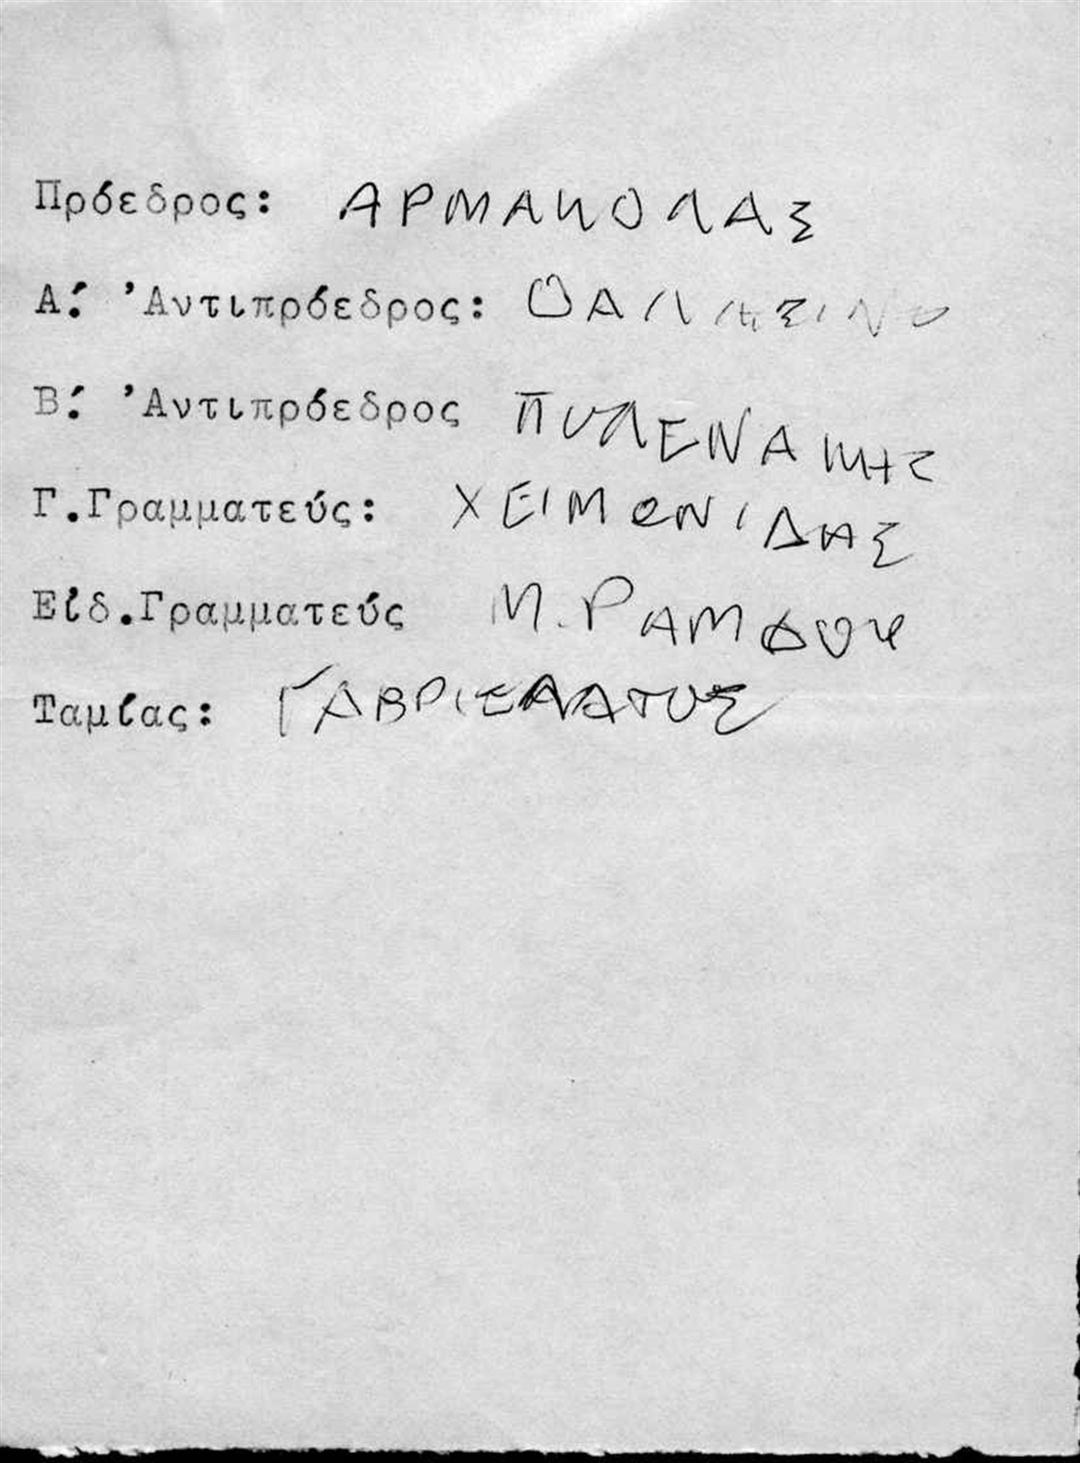 Πρόεδρος: ΑΡΜΑΚΟΛΑΣ
Α΄: Ἀντιπρόεδρος:
Β΄: Ἀντιπρόεδρος ΠΥΛΕΝΑΚΗΣ
Γ.Γραμματεύς: ΧΕΙΜΩΝΙΔΗΣ
Είδ.Γραμματεύς Μ. ΡΑΜΔΟΥ
Ταμίας: ΓΑΒΡΙΕΛΑΤΟΣ